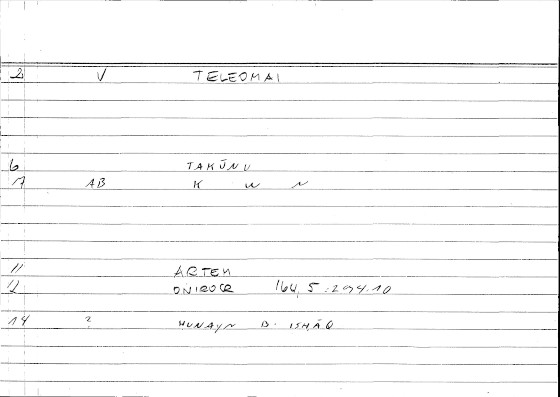 2 V TELEOMAI
6 TAKŪNU
7 AB K W N
11 ARTEM
12 ONIROCR 164,5 : 294.10
14 ? HUNAYN B. ISHĀQ